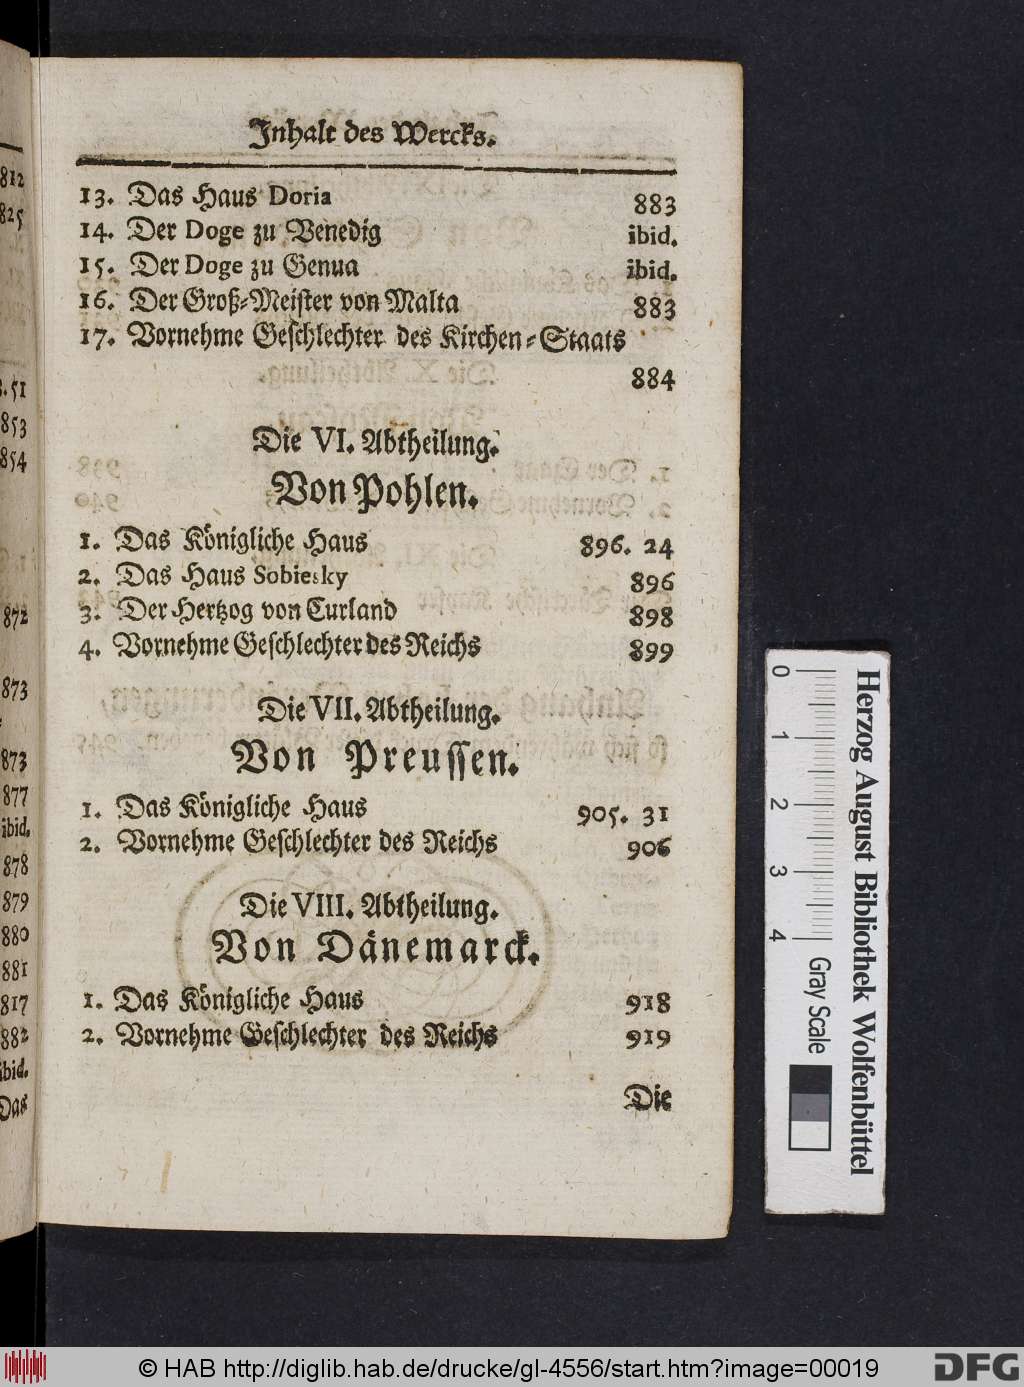 Inhalt des Wercks.
13. Das Haus Doria 883
14. Der Doge zu Venedig ibid.
15. Der Doge zu Genua ibid.
16. Der Groß-Meister von Malta 883
17. Vornehme Geschlechter des Kirchen-Staats
884
Die VI. Abtheilung.
Von Pohlen.
1. Das Königliche Haus 896. 24
2. Das Haus Sobiesky 896
3. Der Hertzog von Curland 898
4. Vornehme Geschlechter des Reichs 899
Die VII. Abtheilung.
Von Preussen.
1. Das Königliche Haus 905. 31
2. Vornehme Geschlechter des Reichs 906
Die VIII. Abtheilung.
Von Dänemarck.
1. Das Königliche Haus 918
2. Vornehme Geschlechter des Reichs 919
Die
812
825
51
853
854
872
873
873
877
ibid.
878
879
880
881
817
882
ibid.
Das
0 1 2 3 4 Gray Scale
Herzog August Bibliothek Wolfenbüttel
© HAB http://diglib.hab.de/drucke/gl-4556/start.htm?image=00019
DFG